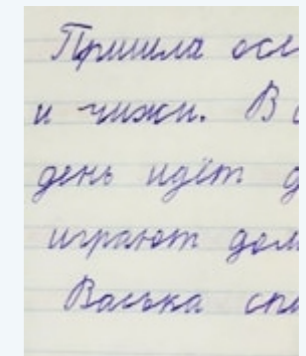 Пришла осе
и чижи. В с
день идёт д
играют дом
Васька спи